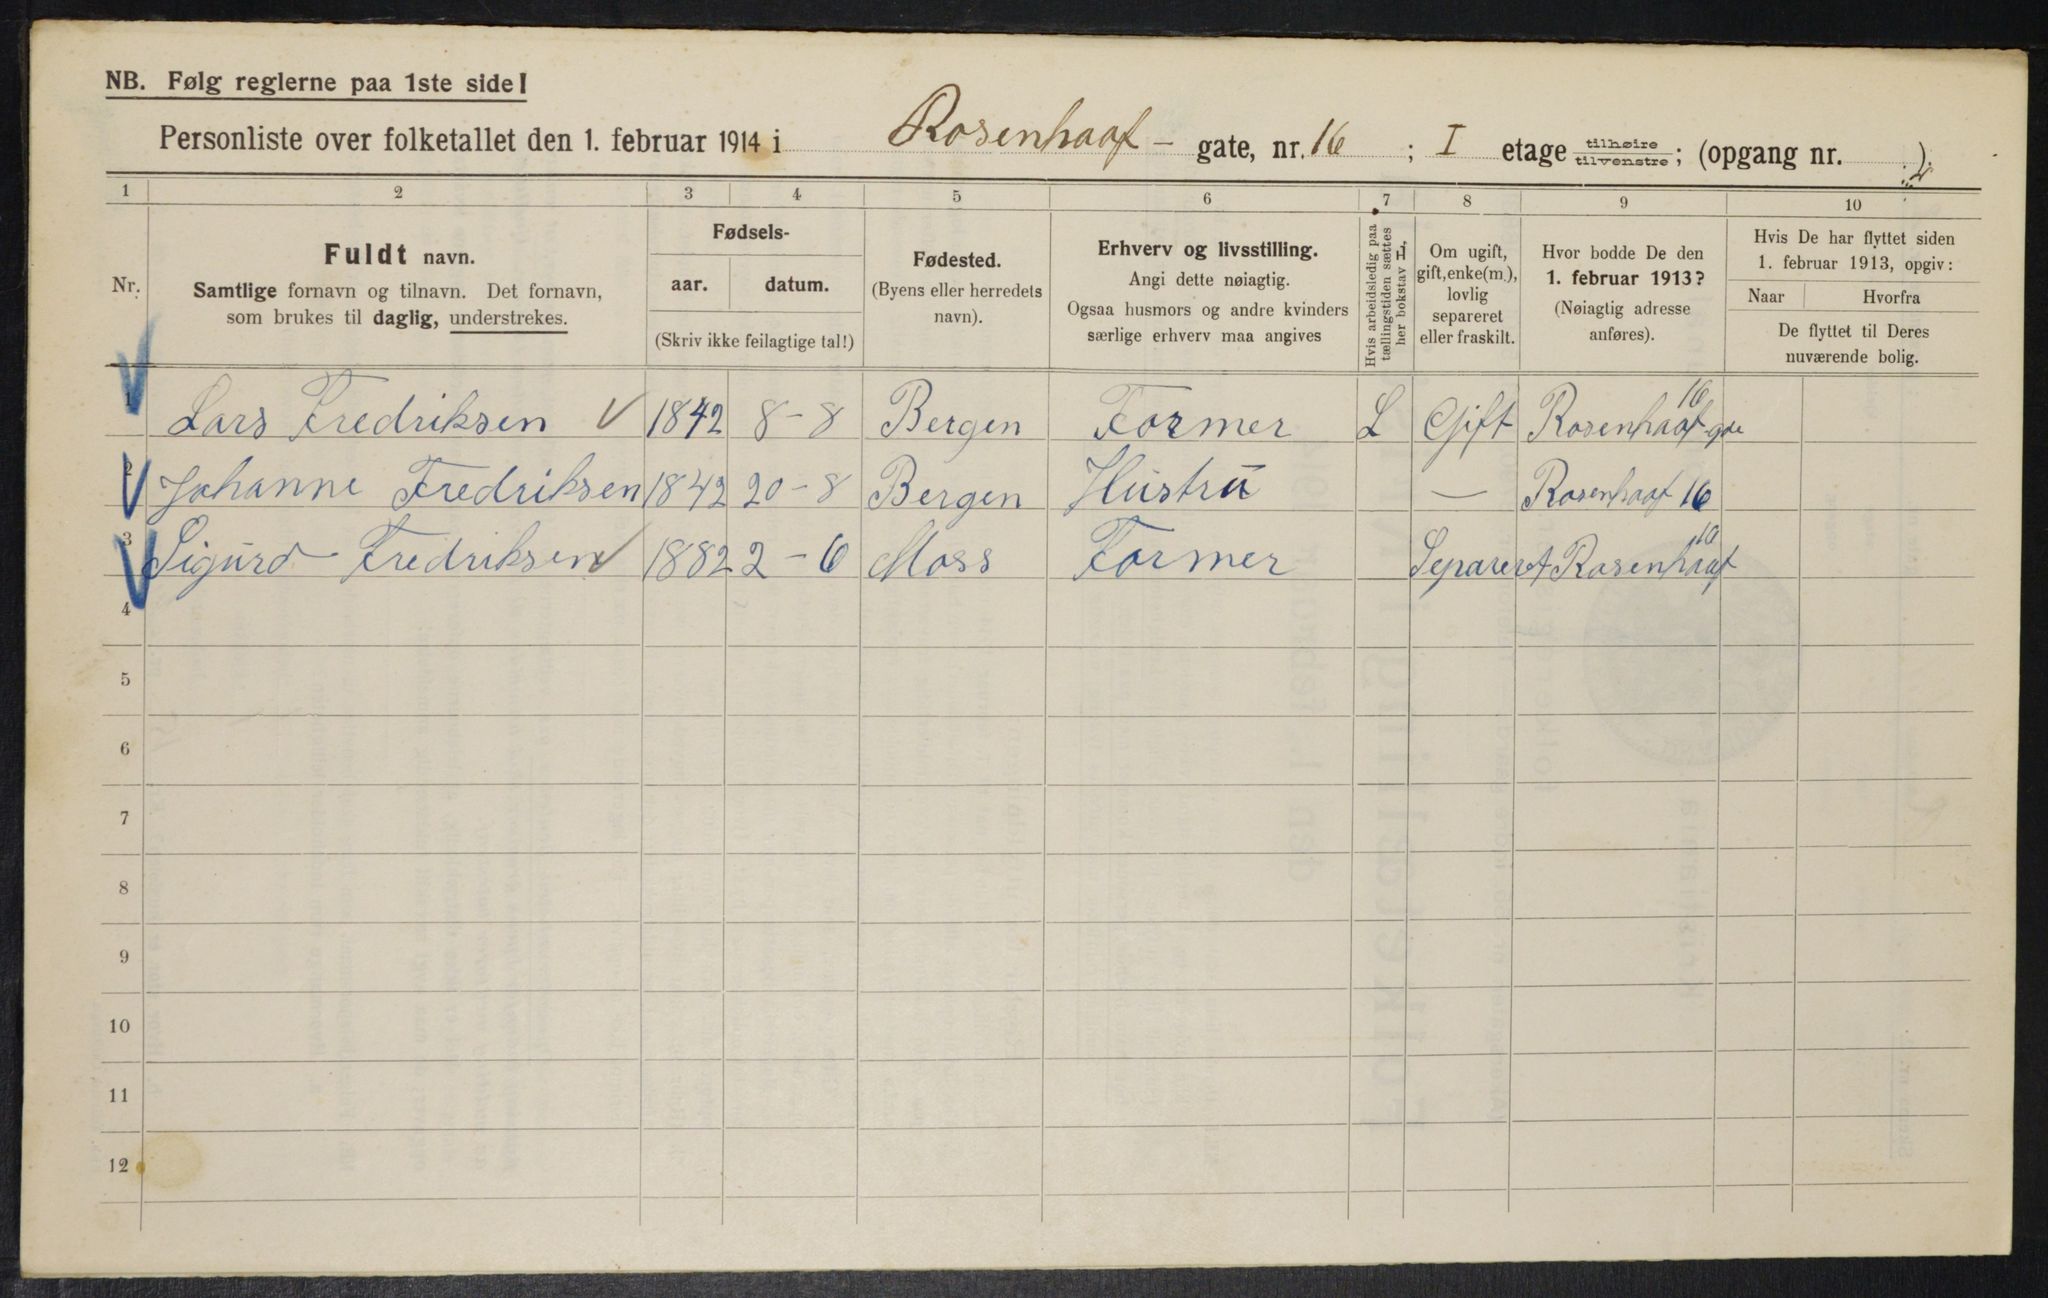 NB. Følg reglerne paa 1ste side!
Personliste over folketallet den 1. februar 1914 i Rosenhoof - gate, nr. 16 ; I etage tilhøire tilvenstre; (opgang nr. ).
1 2 3 4 5 6 7 8 9 10
Nr.
Fuldt navn.
Samtlige fornavn og tilnavn. Det fornavn,
som brukes til daglig, understrekes.
Fødsels-
aar. datum.
(Skriv ikke feilagtige tal!)
Fødested.
(Byens eller herredets
navn).
Erhverv og livsstilling.
Angi dette nøiagtig.
Ogsaa husmors og andre kvinders
særlige erhverv maa angives
Hvis arbeidsledig paa
tællingstiden sættes
her bokstav L,
Om ugift,
gift, enke(m.),
lovlig
separeret
eller fraskilt.
Hvor bodde De den
1. februar 1913?
(Nøiagtig adresse
anføres).
Hvis De har flyttet siden
1. februar 1913, opgiv:
Naar Hvorfra
De flyttet til Deres
nuværende bolig.
1 Lars Fredriksen 1842 8-8 Bergen Former L Gift Rosenhaaf gae 16
2 Johanne Fredriksen 1842 20-8 Bergen Hustru — Rosenhaaf 16
3 Sigurd Fredriksen 1882 2-6 Moss Former Separeret Rosenhaaf 16
4
5
6
7
8
9
10
11
12